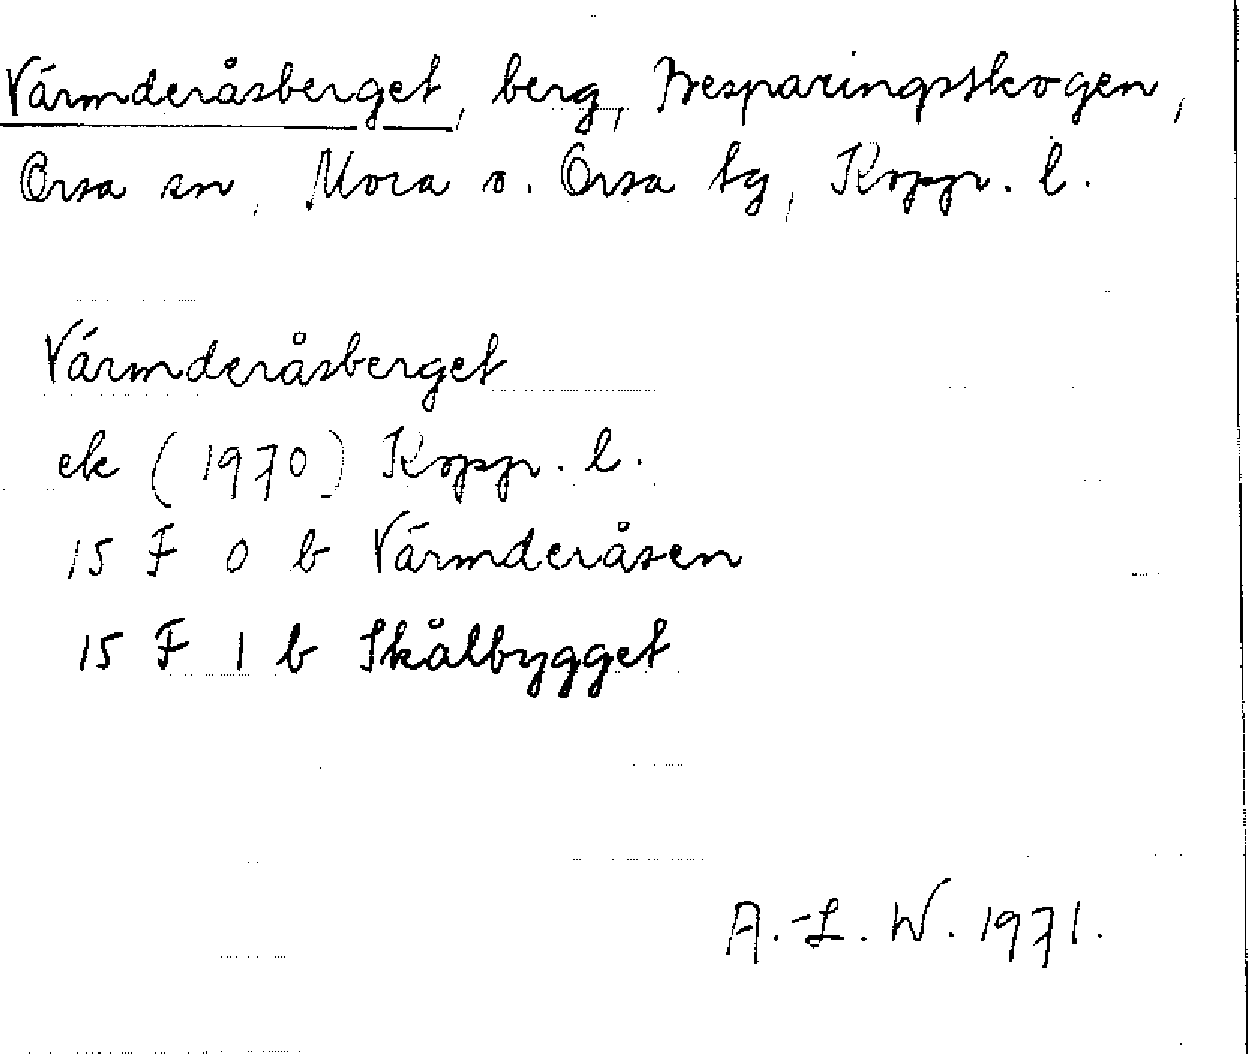 Värmderåsberget, berg, Besparingsskogen,
Orsa sn, Mora o. Orsa tg, Kopp. l.
Värmderåsberget
ek (1970) Kopp. l.
15 F 0 b Värmderåsen
15 F 1 b Skålbygget
A.-L. W. 1971.